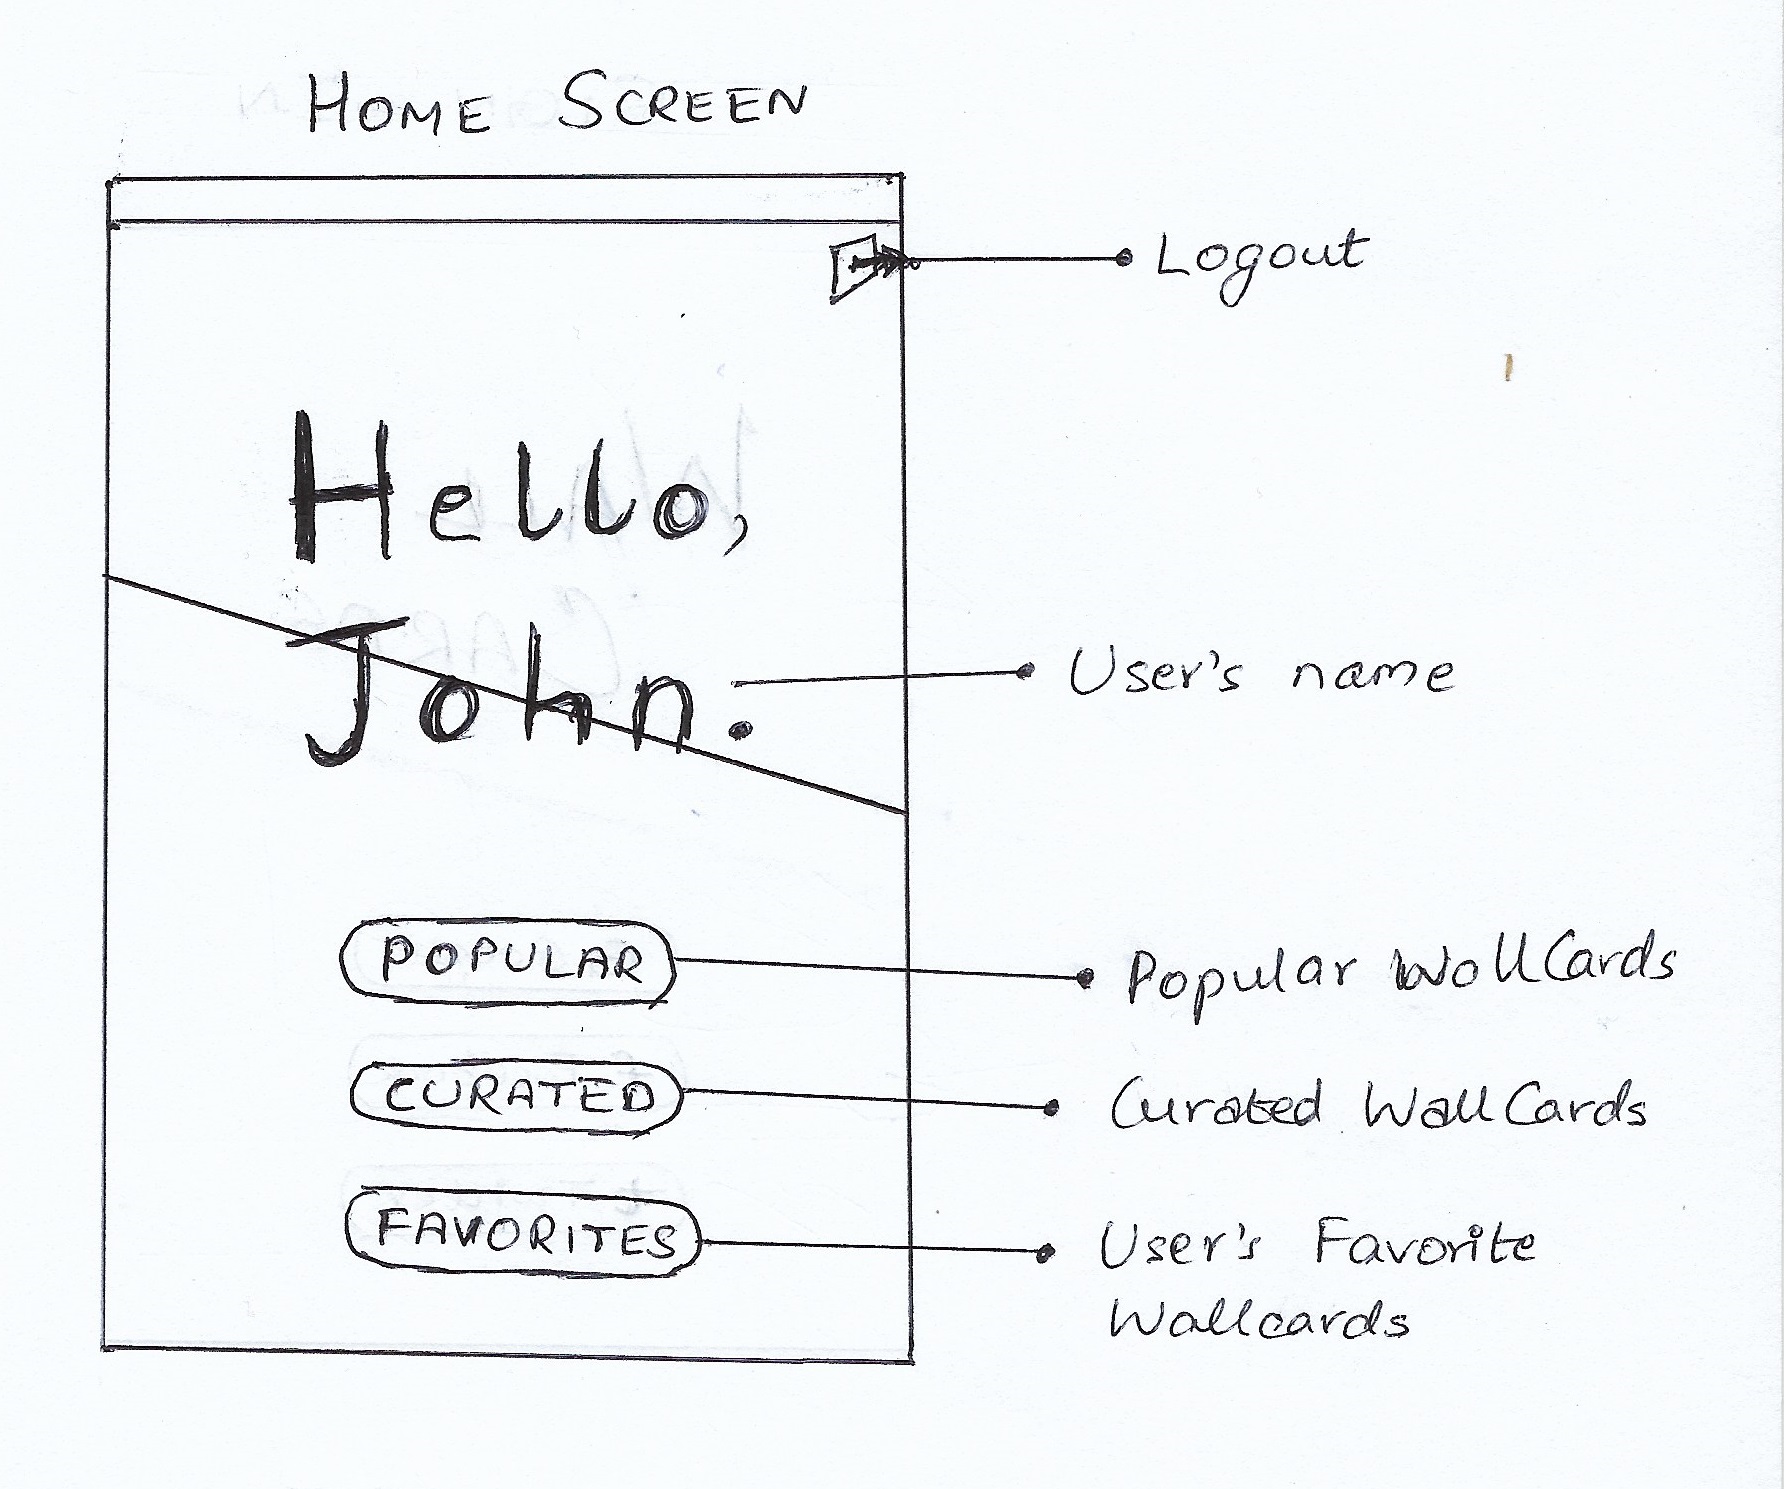 HOME SCREEN
Logout
Hello,
John.
User's name
POPULAR
Popular WallCards
CURATED
Curated WallCards
FAVORITES
User's Favorite
Wallcards